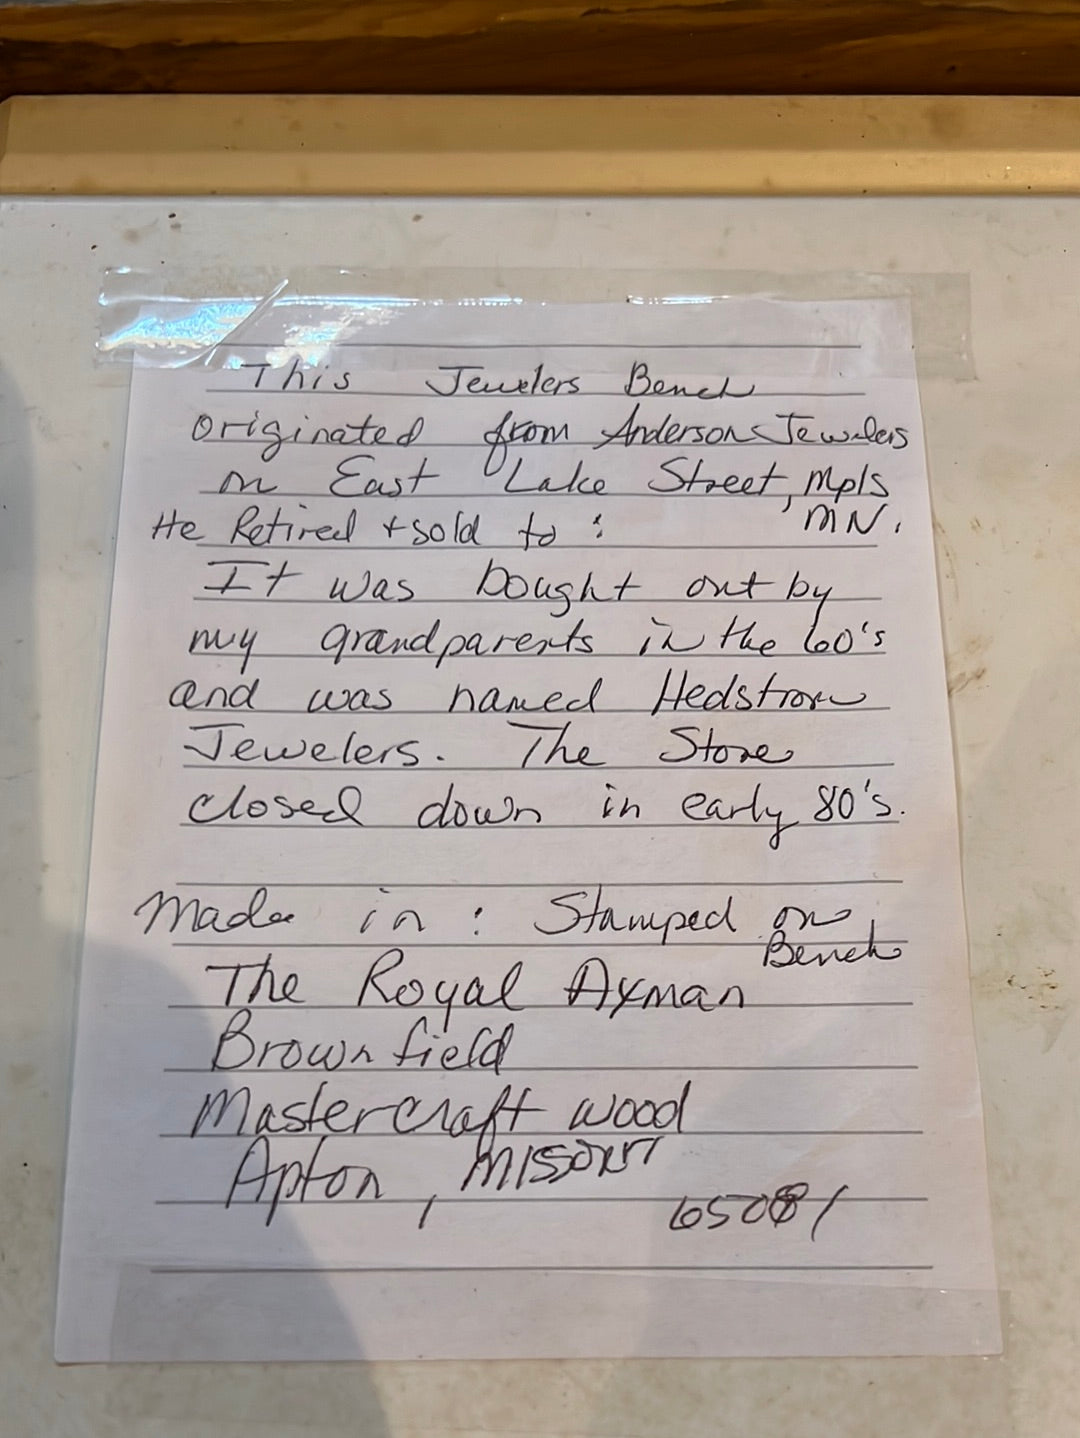 This Jewelers Bench
originated from Anderson Jewelers
on East Lake Street, Mpls
MN.
He Retired + sold to :
It was bought out by
my grandparents in the 60's
and was named Hedstrom
Jewelers. The Store
closed down in early 80's.
Made in : Stamped on
Bench
The Royal Axman
Brownfield
Mastercraft wood
Apton, Missouri
65081